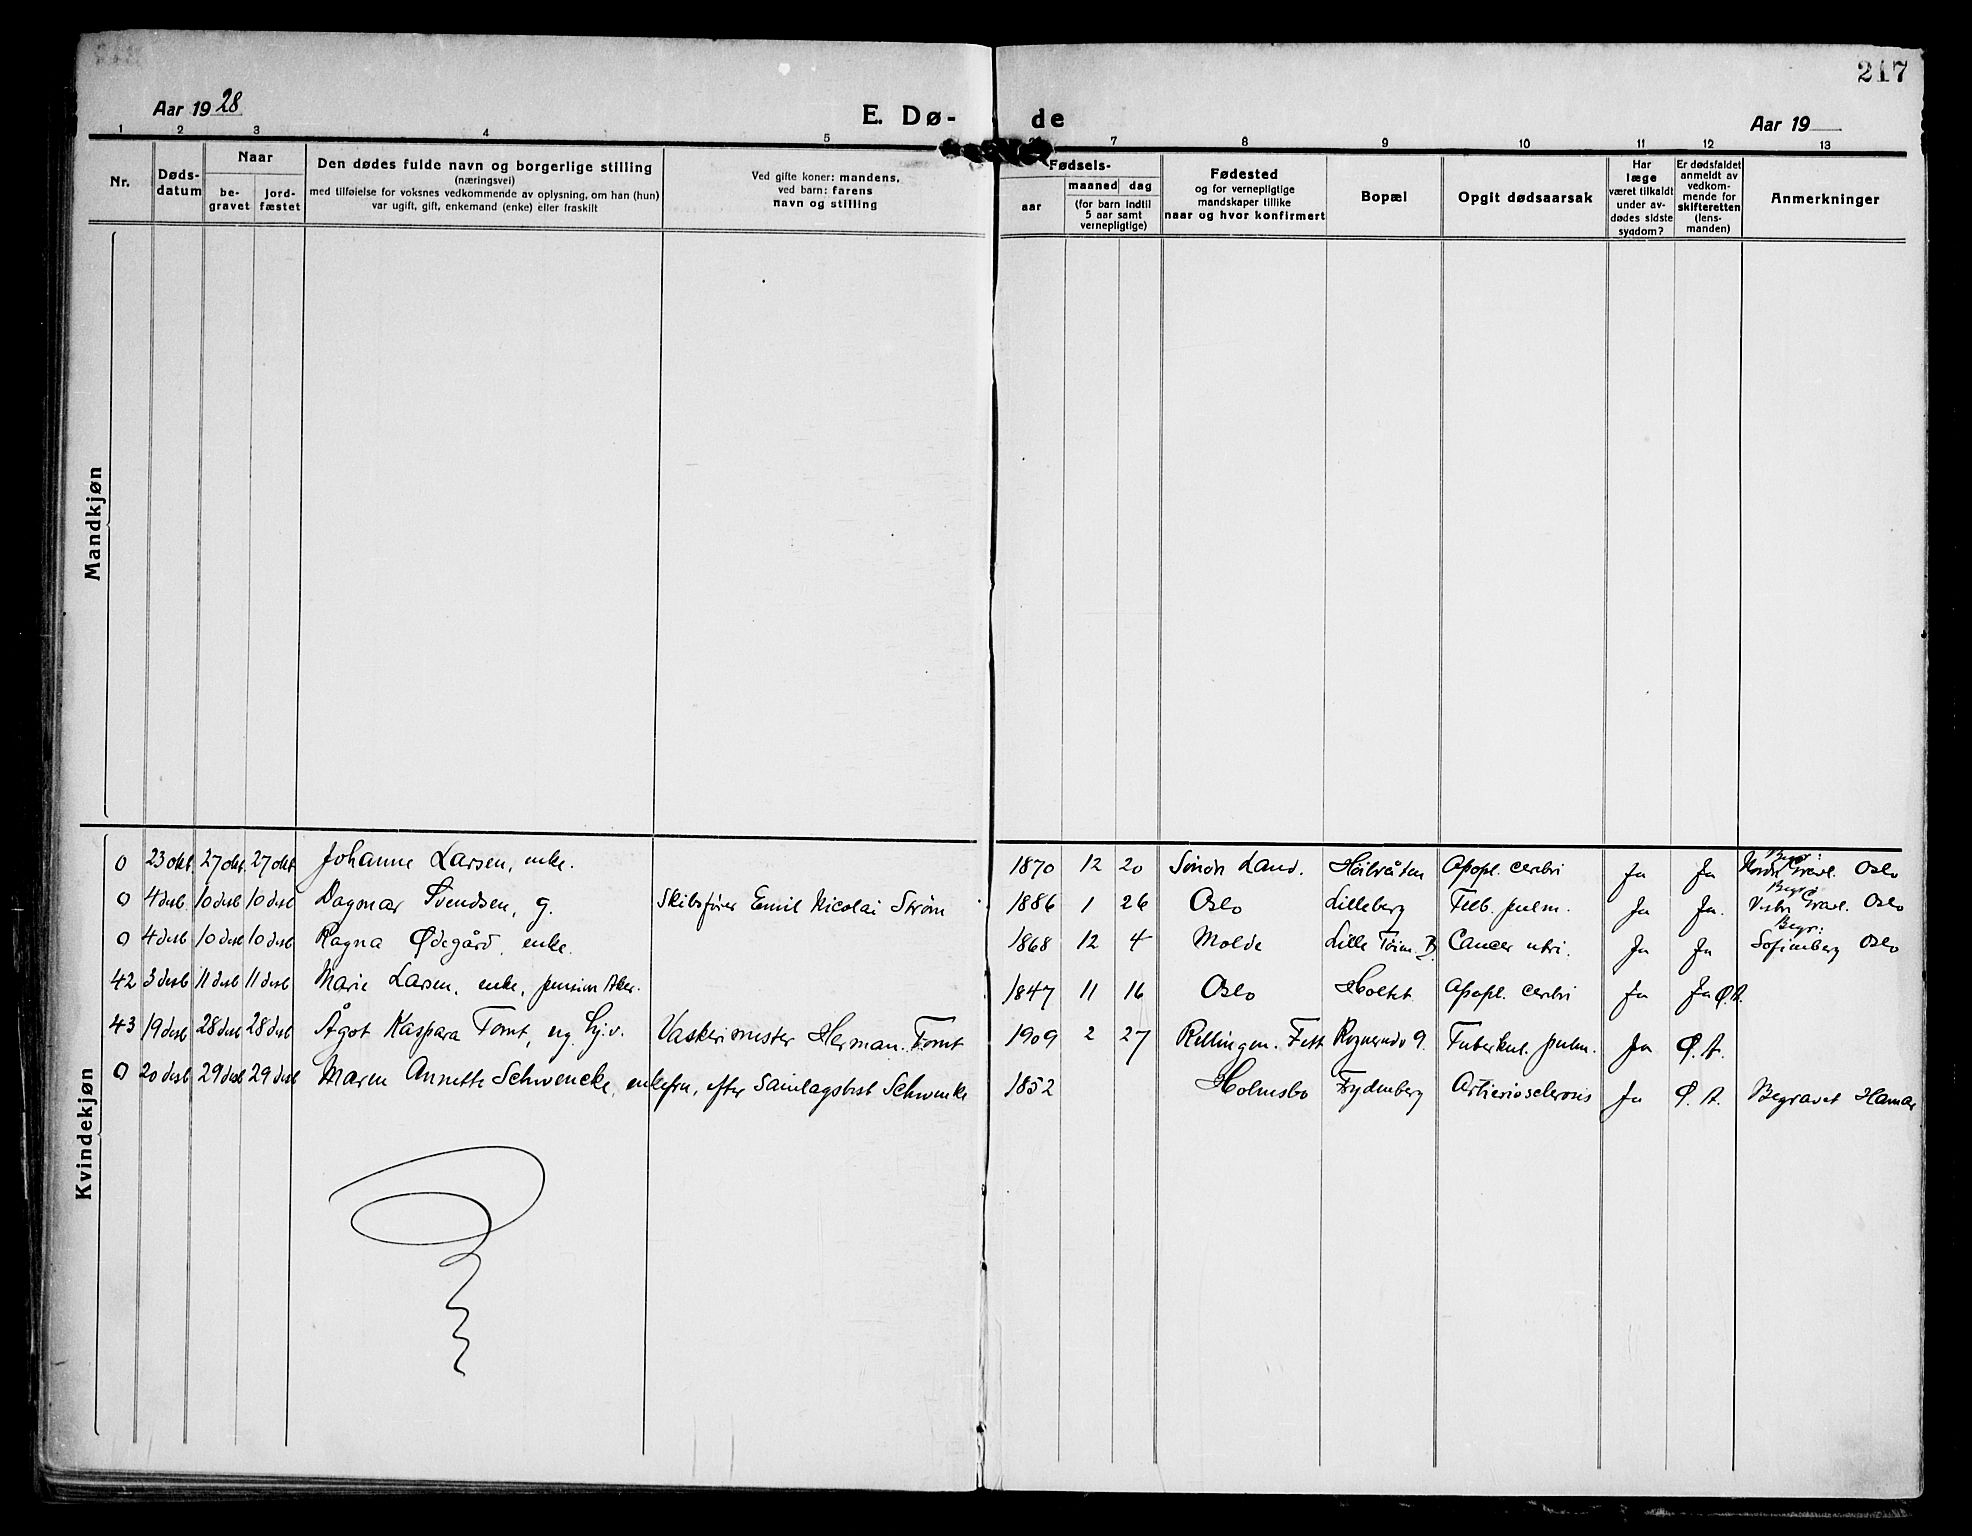 217
Aar 1928
E. Dø-
de
Aar 19
1 2 3 4 5 7 8 9 10 11 12 13
Nr.
Døds-
datum
Naar
be-
gravet
jord-
fæstet
Den dødes fulde navn og borgerlige stilling
(næringsvei)
med tilføielse for voksnes vedkommende av oplysning, om han (hun)
var ugift, gift, enkemand (enke) eller fraskilt
Ved gifte koner: mandens,
ved barn: farens
navn og stilling
Fødsels-
aar
maaned dag
(for barn indtil
5 aar samt
vernepligtige)
Fødested
og for vernepligtige
mandskaper tillike
naar og hvor konfirmert
Bopæl
Opgit dødsaarsak
Har
læge
været tilkaldt
under av-
dødes sidste
sygdom?
Er dødsfaldet
anmeldt av
vedkom-
mende for
skifteretten
(lens-
manden)
Anmerkninger
Mandkjøn
Kvindekjøn
0 23 okt. 27 okt. 27 okt Johanne Larsen, enke. 1870 12 20 Søndr Land. Høibråten Apopl. cerebri Ja Ja Begr: Nordre Gravl. Oslo
0 4 desb. 10 desb 10 desb Dagmar Svendsen, g. Skibsfører Emil Nicolai Strøm 1886 1 26 Oslo Lilleberg Tub. pulm. Ja Ja. Begr: Vestre Gravl. Oslo
0 4 desb 10 desb 10 desb Ragna Ødegård, enke. 1868 12 4 Molde Lille Tøien B. Cancer utri. Ja Ja Begr: Sofienberg Oslo
42 3 desb 11 desb 11 desb Marie Larsen, enke, pension Aker. 1847 11 16 Oslo Holtet Apopl. cerebri Ja Ja Ø. A.
43 19 desb 28 desb 28 desb Ågot Kaspara Tomt, ug. hj.v. Vaskerimester Herman Tomt 1909 2 27 Rellingen. Fett 9. Tuberkul. pulm. Ja Ø. A.
0 20 desb 29 desb 29 desb Maren Annette Schwencke, enkefru, efter Samlagsbest Schwencke 1852 Holmsbo Frydenberg Arteriosclerosis Ja Ø. A. Begravet Hamar